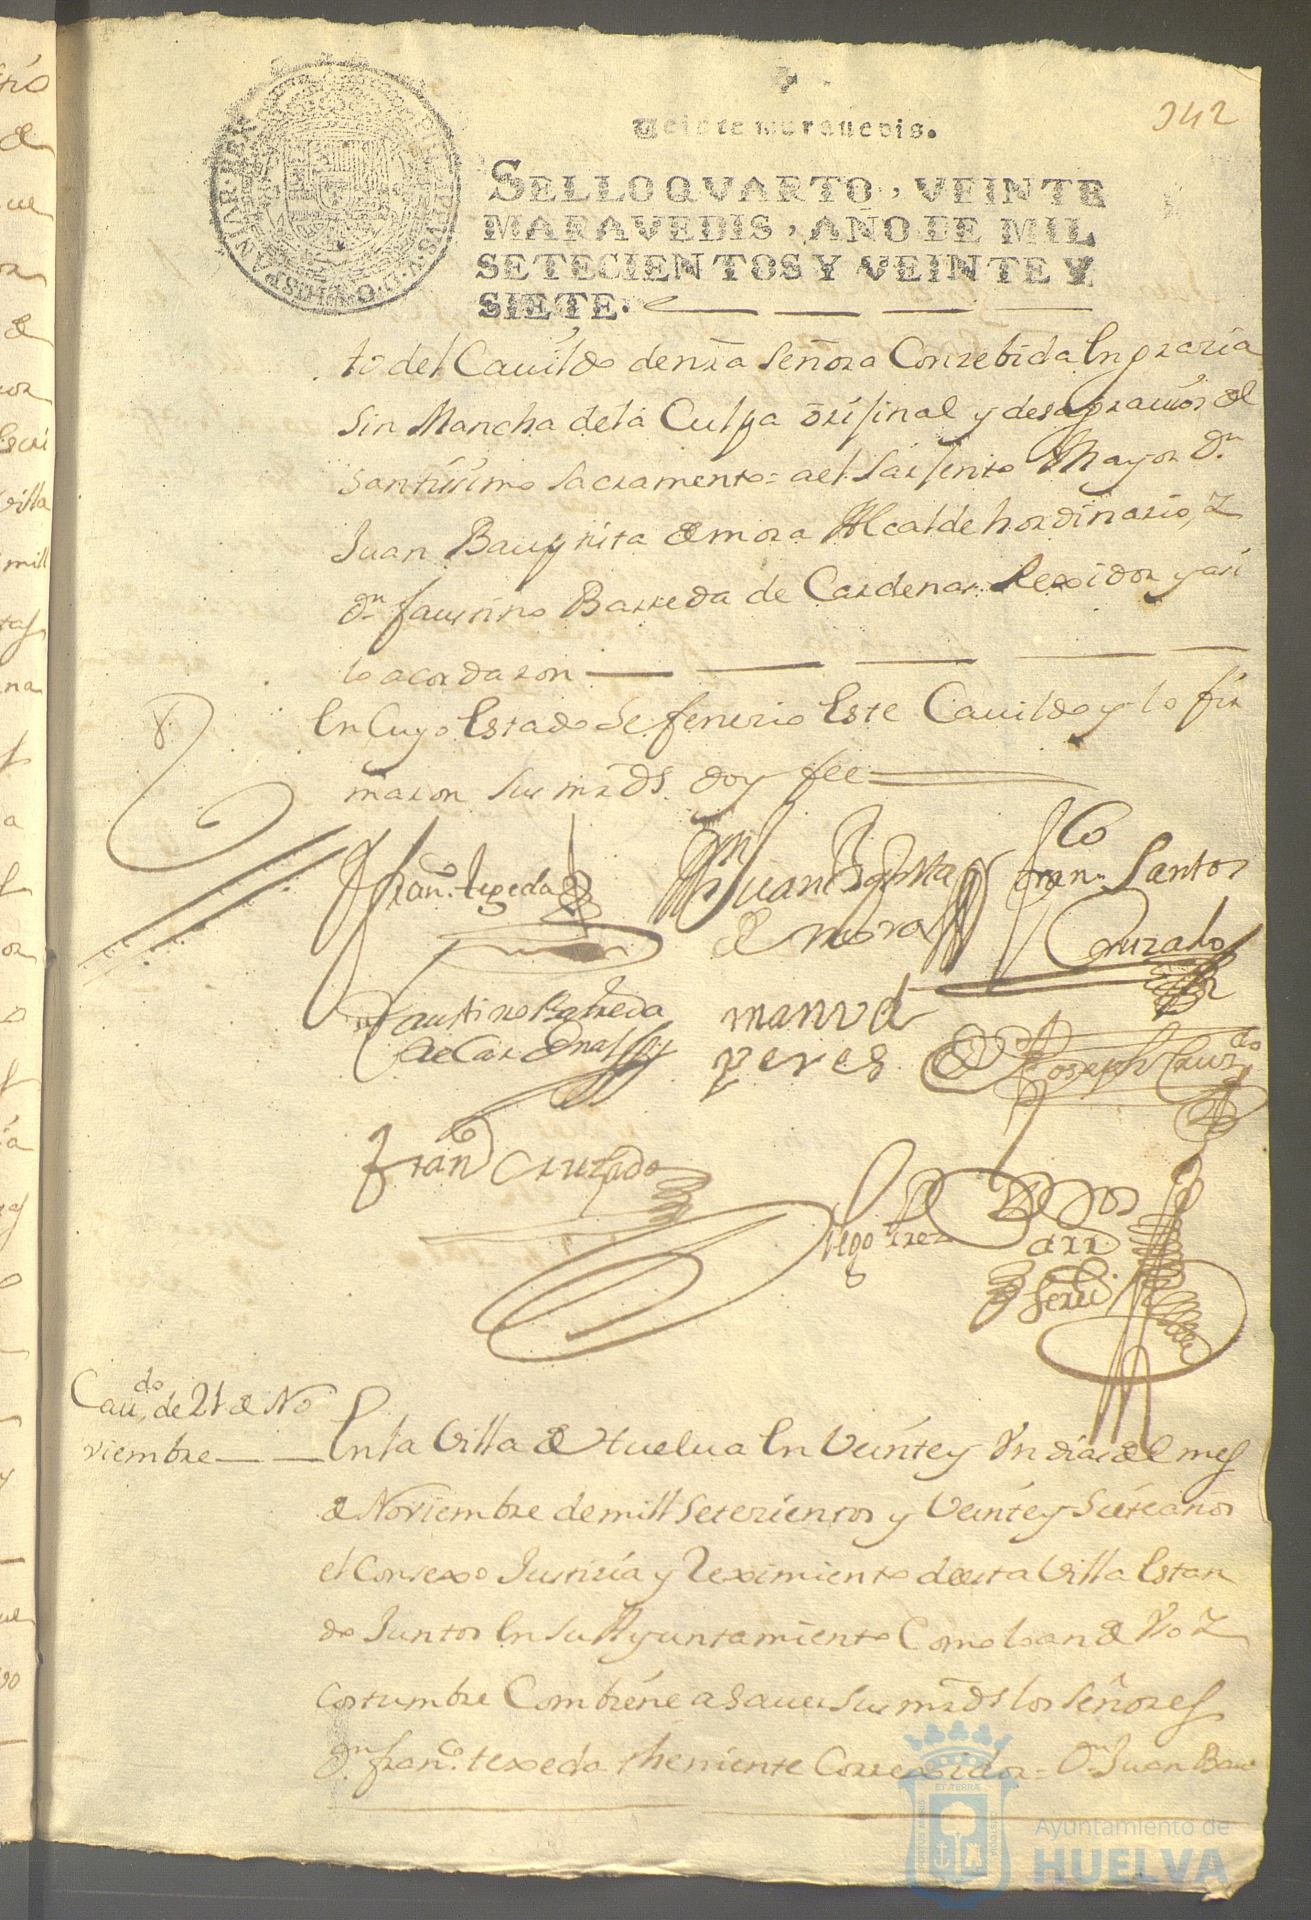 342
Veinte marauedis.
SELLO QVARTO, VEINTE
MARAVEDIS, AÑO DE MIL
SETECIENTOS Y VEINTE Y
SIETE.
to del Cauildo de nrã Señora Conzebida En grazia
Sin Mancha de la Culpa orijinal y desagrauios del
Santissimo Sacramento = a el Sarjento Mayor Dn
Juan Baupsita de mora Alcalde hordinario, y
Dn faustino Barreda de Cardenas Rexidor y asi
lo acordaron
En Cuyo Estado Se fenezio Este Cauildo y lo fir
maron Sus mrds. doy fee
Franco. texeda
Dn Juan Bapsta
de mora
Franco Santos
Cruzado
Faustino Barreda
de Cardenas
manuel
peres
Joseph Cruzdo
Franco Cruzado
Diego
Cauido. de 21 de No
viembre
En la Villa de Huelua En Veinte y Vn dias del mes
de Noviembre de mill Setezientos y Veinte y Siete años
el Consexo Justizia y Reximiento de esta Villa Estan
do Juntos En Su Ayuntamiento Como lo an de Vso y
costumbre Combiene a Sauer Sus mrds los Señores
Dn. franco. texeda theniente Correxidor = Dn Juan Bau
Ayuntamiento de
HUELVA